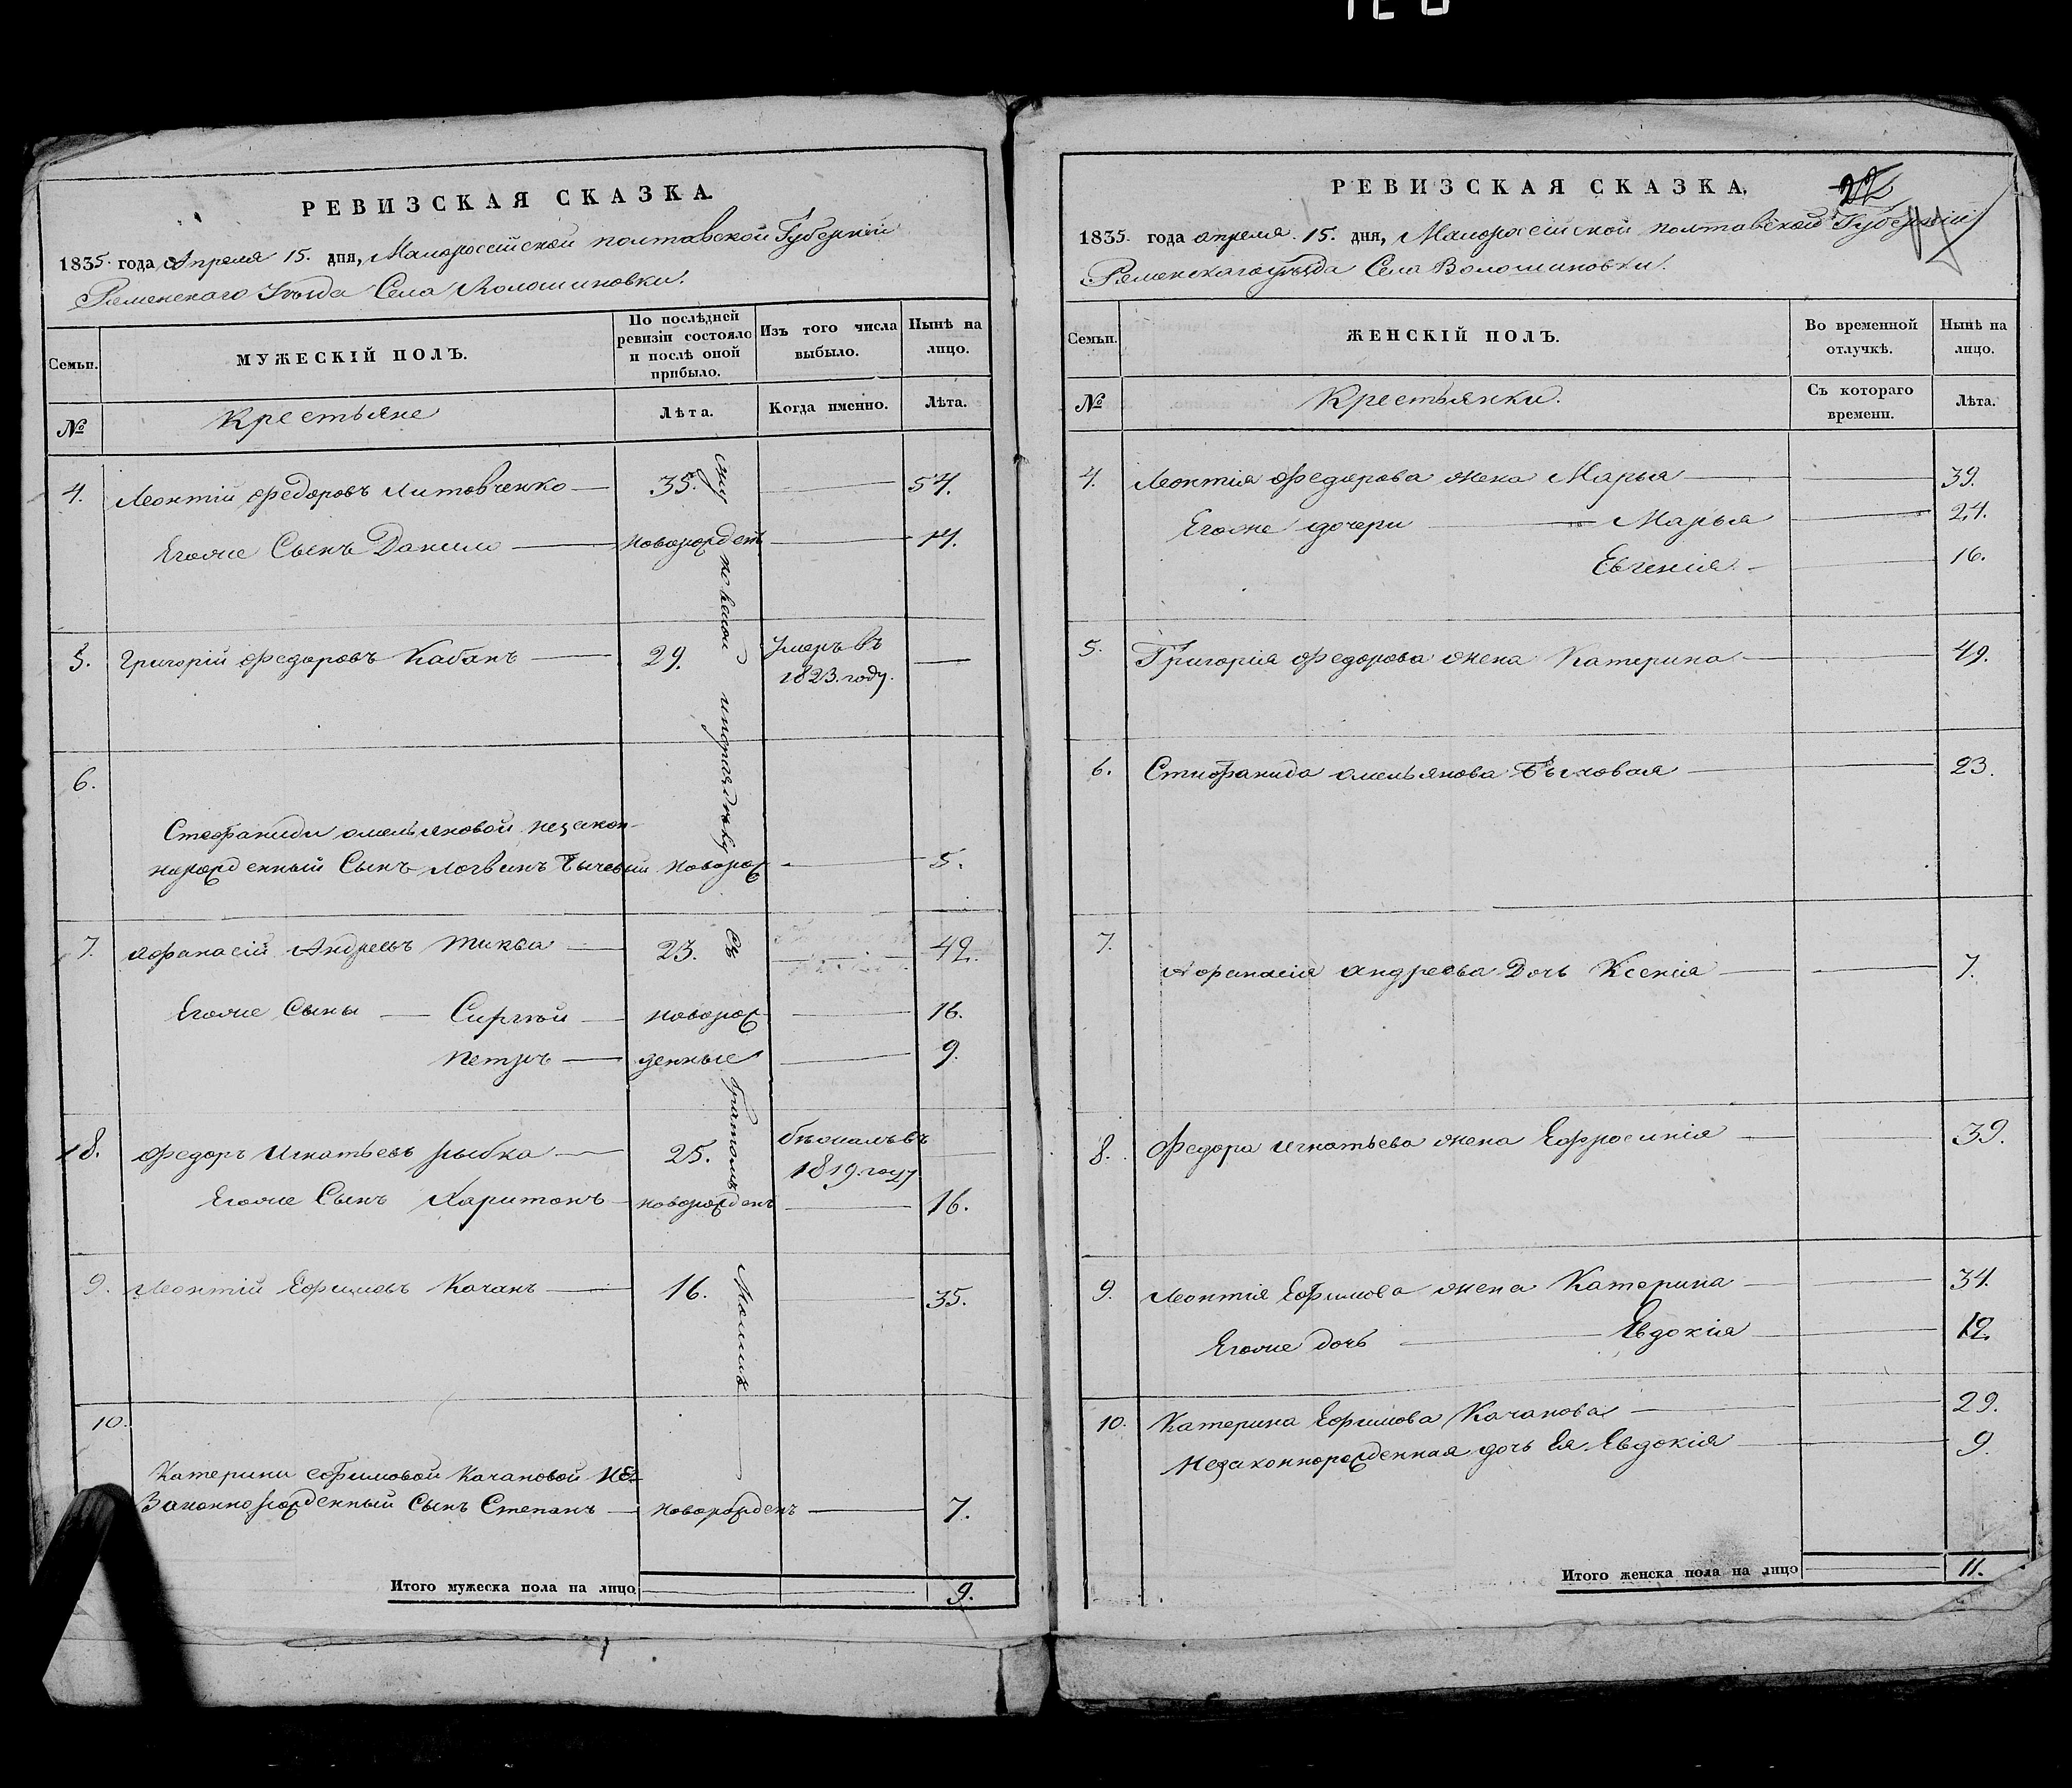 РЕВИЗСКАЯ СКАЗКА.
1835. года Апреля 15. дня, Малороссійской полтавской Губерніи
Роменского Уезда Села Волошиновки.
Семьи.
МУЖЕСКІЙ ПОЛЪ.
По послѣдней ревизіи состояло и послѣ оной прибыло.
Изъ того числа выбыло.
Нынѣ на лицо.
№
Крестьяне
Лѣта.
Когда именно.
Лѣта.
4. Леонтій Федоровъ Литовченко 35. 54.
Егоже Сынъ Данило новорожден 14.
5. Григорій Федоровъ Кабанъ 29. Умеръ въ 1823. году.
6.
Стефаниди омельяновой незакон-
норожденный Сынъ Логвинъ новорож 5.
7. Афанасій Андреевъ Тиква 23. 42.
Егоже Сыны Сиргѣй новорож 16.
Петръ денные 9.
18. Федоръ Игнатьевъ рыбка 25. бежалъ въ 1819. году
Егоже Сынъ Харитонъ новорожденъ 16.
9. Леонтій Ефимовъ Качанъ 16. 35.
10.
Катерини ефимовой Качановой не-
Законнорожденный Сынъ Степанъ новорожденъ 7.
Итого мужеска пола на лицо 9.
РЕВИЗСКАЯ СКАЗКА,
22
1835. года апреля. 15. дня, Малоросійской полтавской Губерніи
Роменского уезда Села Волошиновки.
Семьи.
ЖЕНСКІЙ ПОЛЪ.
Во временной отлучкѣ.
Нынѣ на лицо.
№
Крестьянки.
Съ котораго времени.
Лѣта.
4. Леонтія Федорова жена Марья 39.
Егоже дочери Марья 24.
Евгенія 16.
5. Григорія Федорова жена Катерина 49.
6. Стифанида омельянова 23.
7.
Афанасія андреева Дочь Ксенія 7.
8. Федора игнатьева жена Ефросинія 39.
9. Леонтія Ефимова жена Катерина 34.
Егоже дочь Евдокія 12.
10. Катерина Ефимова Качанова 29.
Незаконнорожденная дочь Ея Евдокія 9.
Итого женска пола на лицо 11.